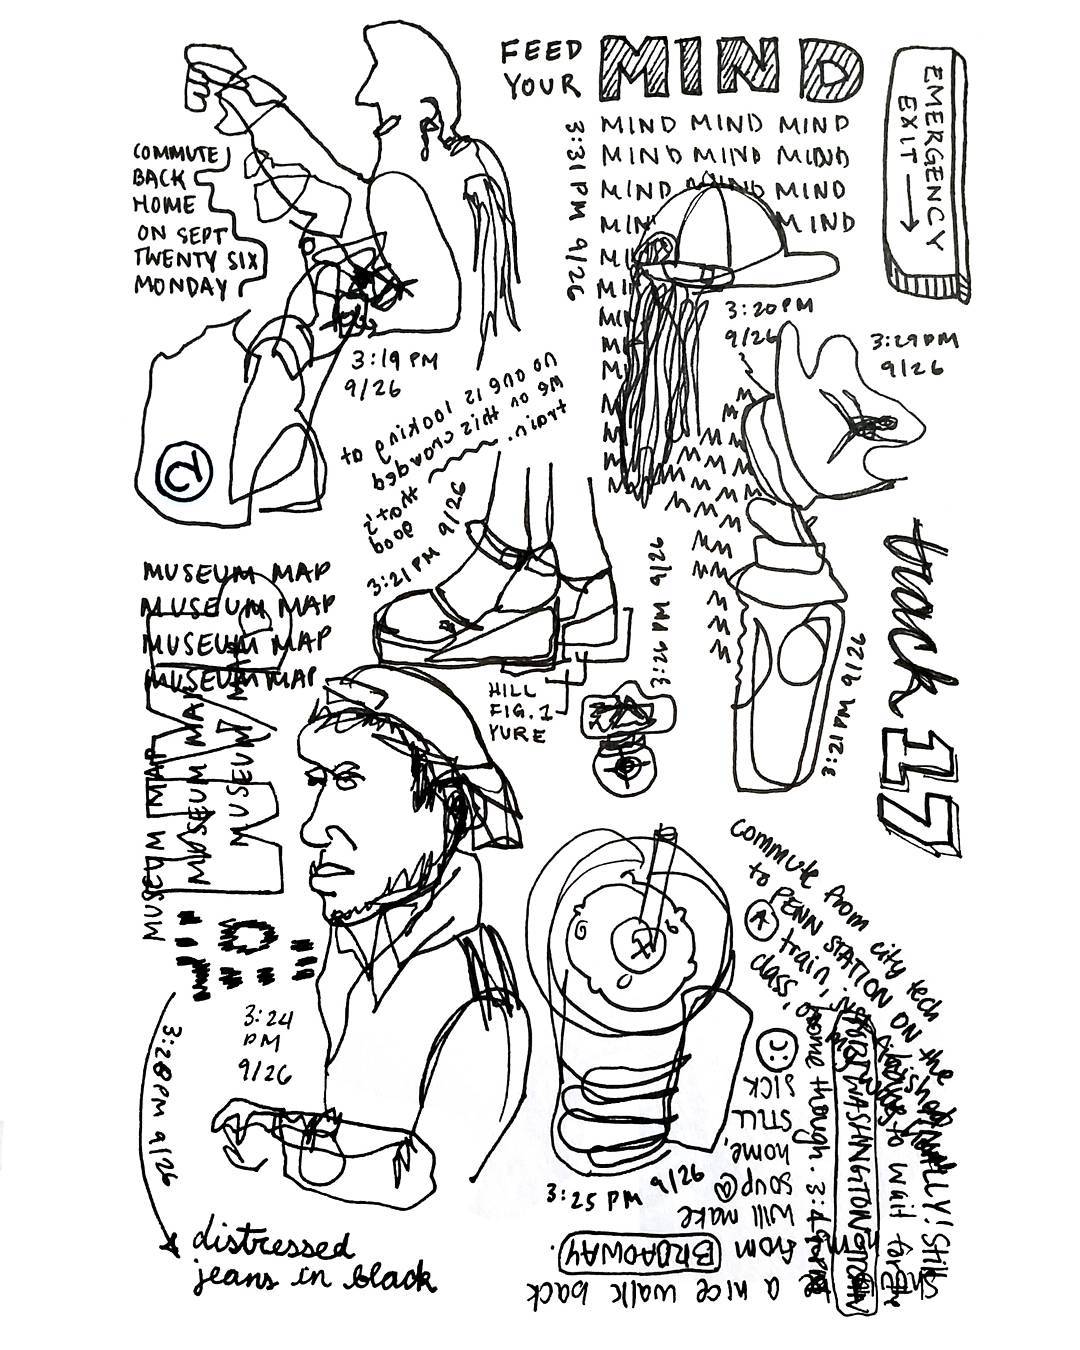 FEED
YOUR
MIND
MIND MIND MIND
MIND MIND MIND
MIND MIND MIND
MIN MIND
MI
MI
MIN
MI
MI
M
M
EMERGENCY
EXIT →
3:31 PM 9/26
COMMUTE
BACK
HOME
ON SEPT
TWENTY SIX
MONDAY
3:19 PM
9/26
3:20 PM
9/26
3:29 PM
9/26
no one is looking at
me on this crowded
train.
that's
good
3:21 PM 9/26
M M
M M M
M M M
M M M M
M M M M
M M M M
M M
M M
M
M M
M M
HILL
FIG. 1
YURE
9/26
3:21 PM 9/26
track
17
MUSEUM MAP
MUSEUM MAP
MUSEUM MAP
MUSEUM MAP
MUSEUM MAP
MUSEUM MAP
MUSEUM MAP
3:24
PM
9/26
3:28 PM 9/26
distressed
jeans in black
3:25 PM 9/26
commute from city tech
to PENN STATION ON the
A train, just finished
class,
home though. 3:45 PM
FINALLY! Still
to wait for the
PORT WASHINGTON TRAIN
a nice walk back
from BROADWAY.
will make
soup @
home,
STILL
SICK